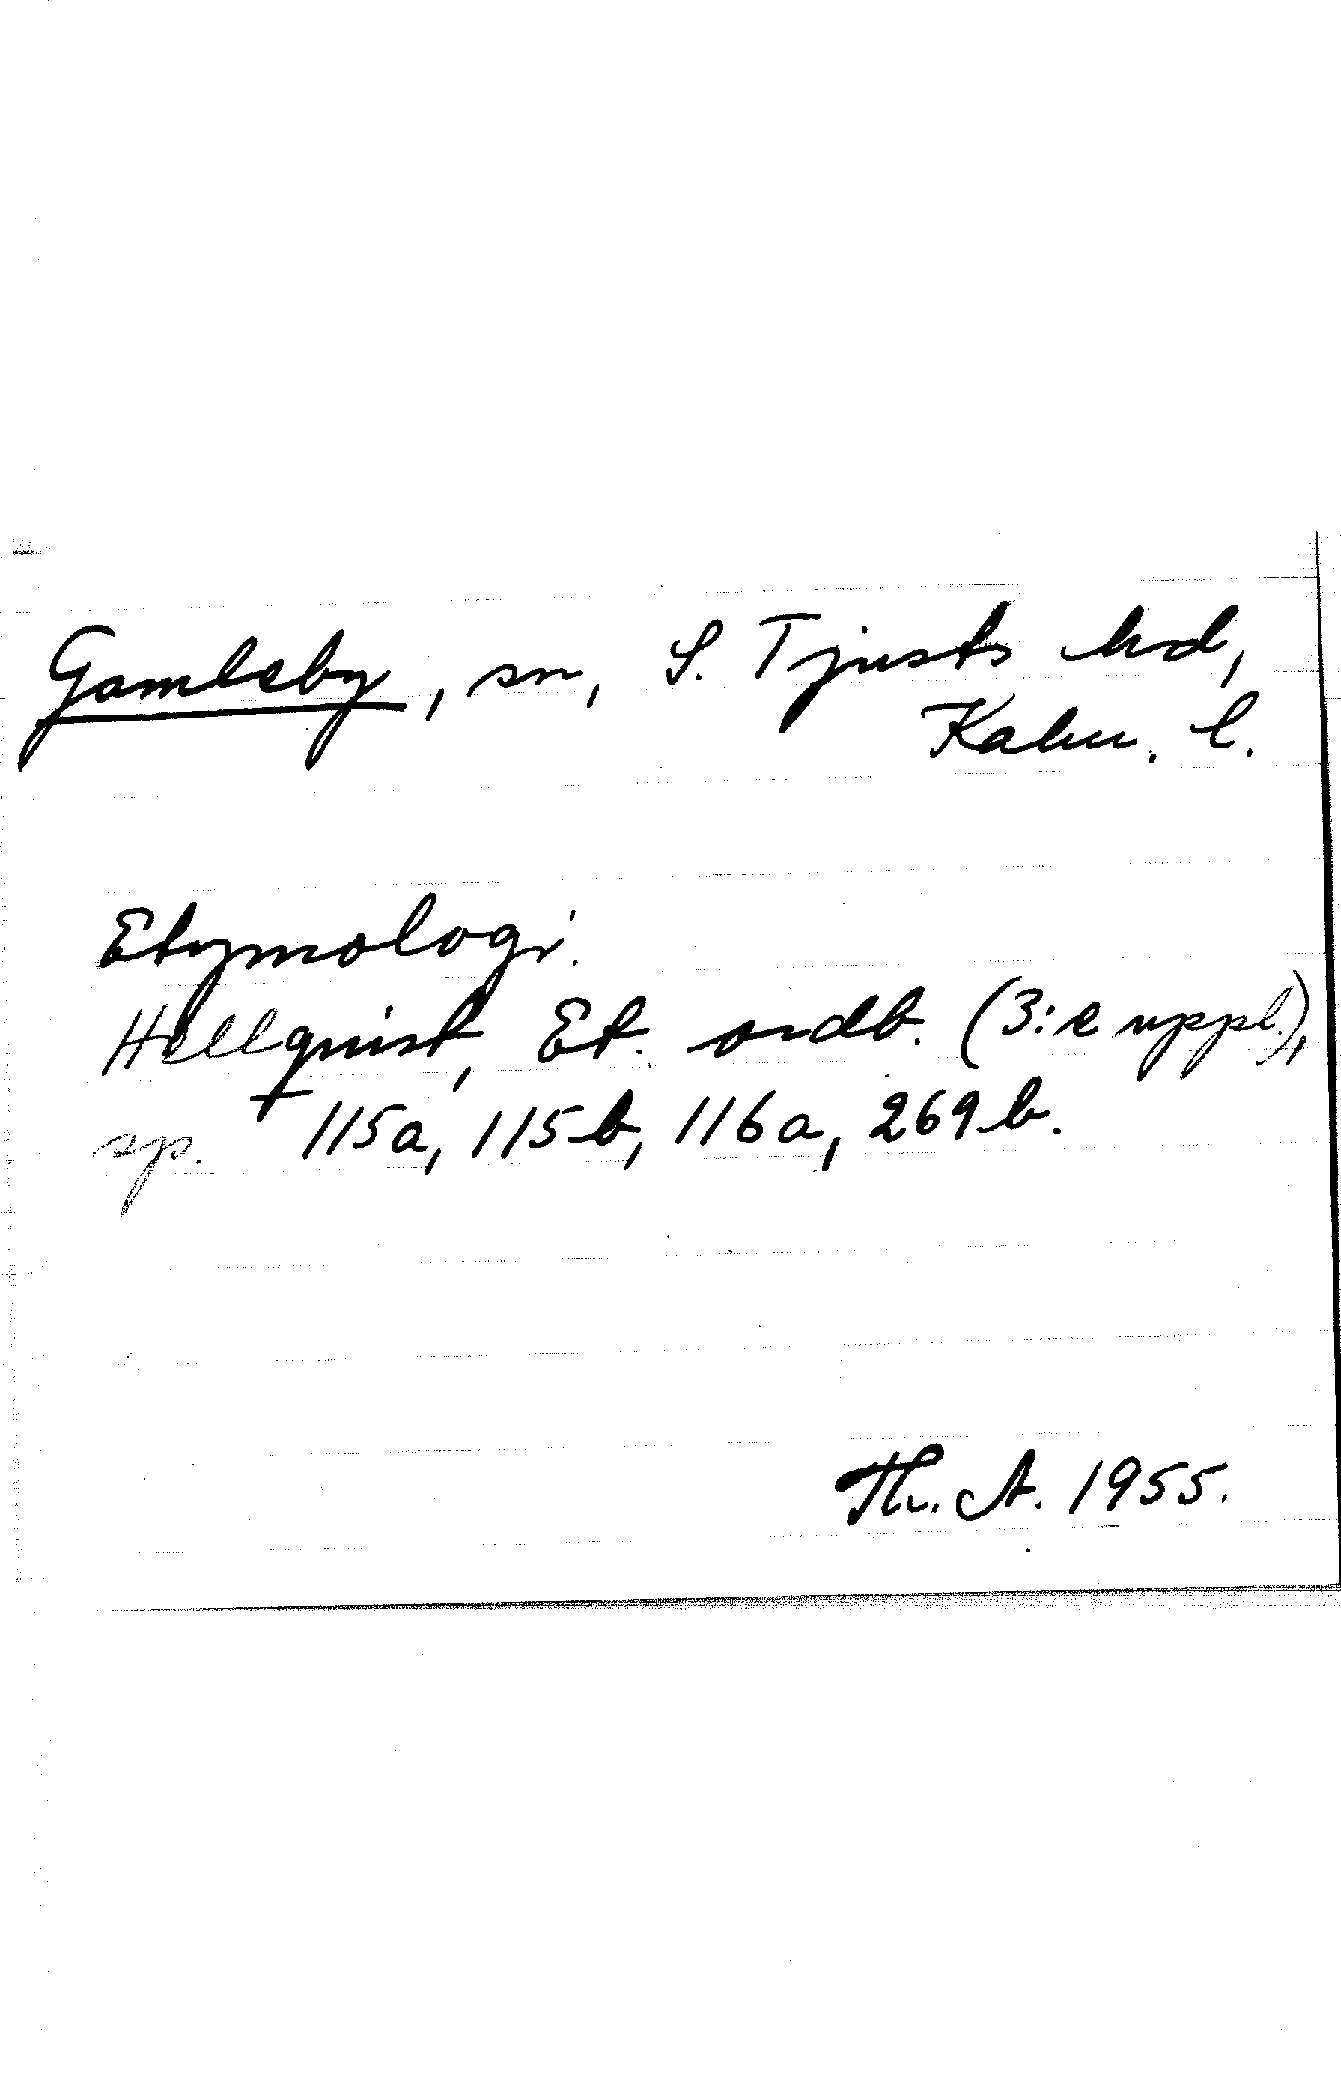 Gamleby, sn, S. Tjusts hd,
Kalm. l.
Etymologi.
Hellquist, Et. ordb. (3:e uppl.),
sp. 115a, 115b, 116a, 269b.
Th. A. 1955.